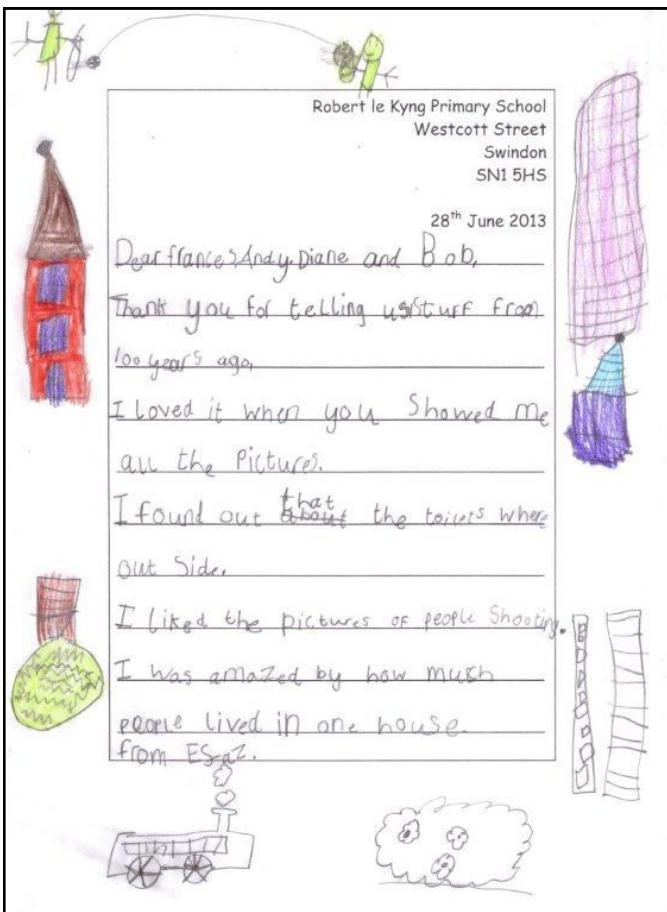 Robert le Kyng Primary School
Westcott Street
Swindon
SN1 5HS
28th June 2013
Dear frances, Andy. Diane and Bob,
Thank you for telling us stuff from
100 years ago,
I loved it when you Showed me
all the Pictures.
I found out that about the toilets where
out Side.
I liked the pictures of people Shooting.
I was amazed by how much
people lived in one house.
from